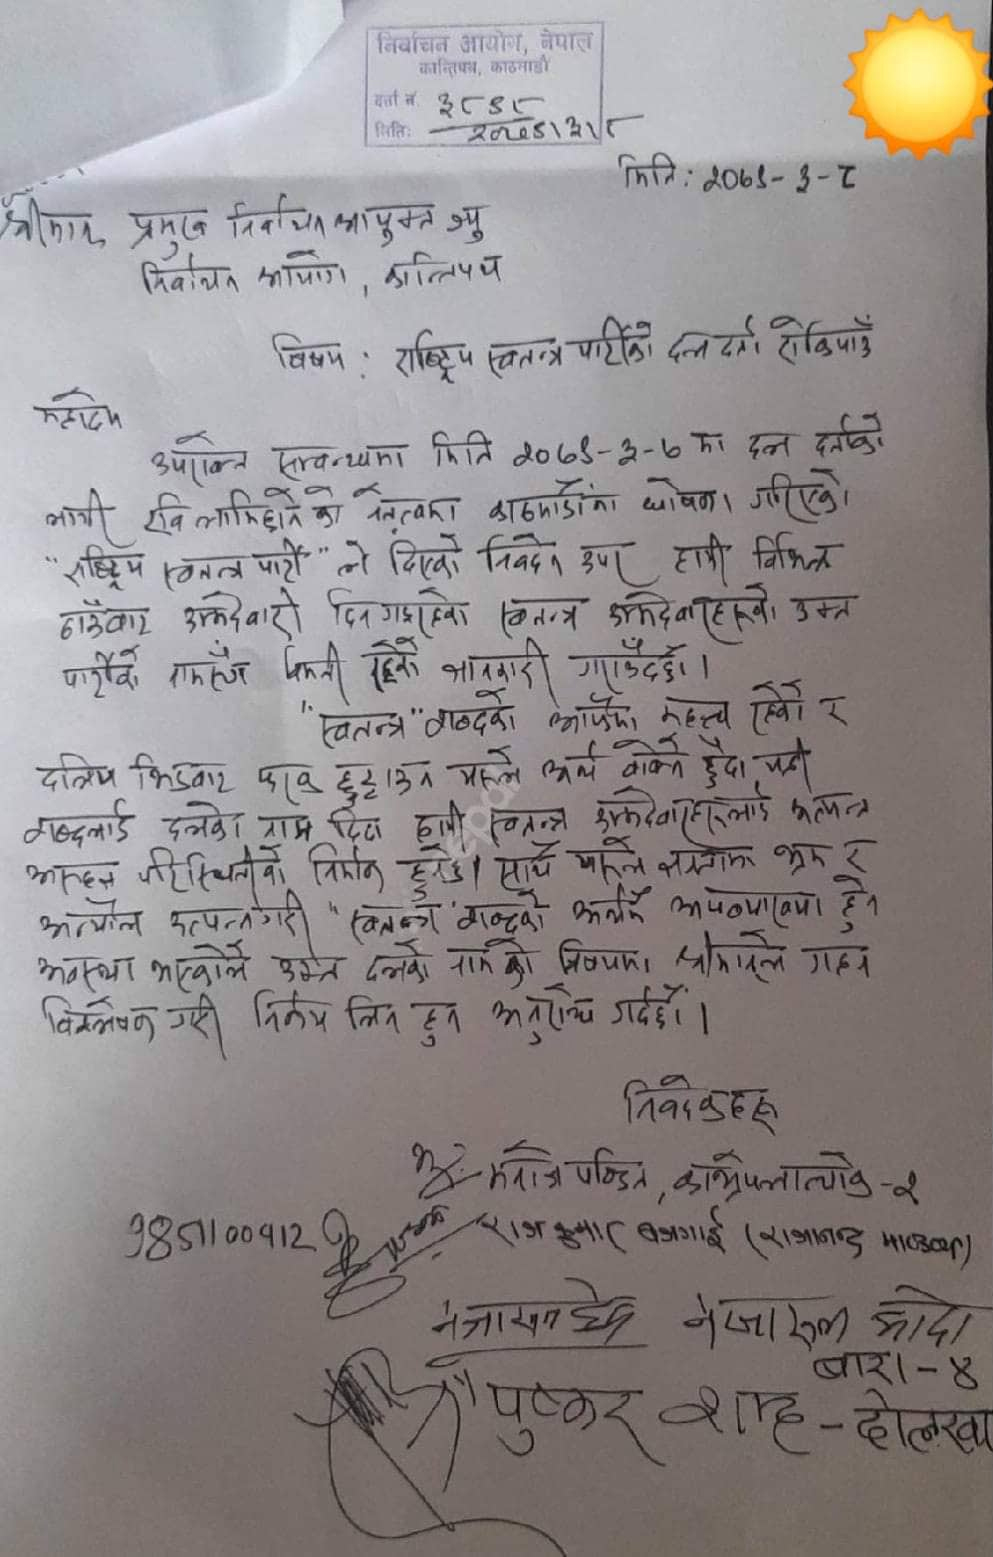 निर्वाचन आयोग, नेपाल
कान्तिपथ, काठमाडौं
दर्ता नं. ३८९८
मिति: २०७९।३।८
मिति: २०७९-३-८
श्रीमान् प्रमुख निर्वाचन आयुक्त ज्यु
निर्वाचन आयोग, कान्तिपथ
विषय: राष्ट्रिय स्वतन्त्र पार्टीको दल दर्ता रोकिपाउँ
महोदय
उपरोक्त सम्बन्धमा मिति २०७९-३-७ मा दल दर्ताको
लागी रवि लामिछाने को नेतृत्वमा काठमाडौंमा घोषणा गरिएको
"राष्ट्रिय स्वतन्त्र पार्टी" ले दिएको निवेदन उपर हामी विभिन्न
ठाउँबाट उम्मेदवारी दिन गइरहेका स्वतन्त्र उम्मेदवारहरुको उक्त
पार्टीको नामसँग असहमती रहेको जानकारी गराउँदछौं।
"स्वतन्त्र" शब्दको आफ्नै महत्त्व रहेको र
दलिय भिडबाट फरक छुट्टाउन यसले अर्थ बोक्ने हुँदा यही
शब्दलाई दलको नाम दिंदा हामी स्वतन्त्र उम्मेदवारहरुलाई अत्यन्त
असहज परिस्थितीको निर्माण हुनेछ। साथै यसले जनतामा भ्रम र
अन्यौल उत्पन्न गरी "स्वतन्त्र" शब्दको अर्थनै अपव्याख्या हुने
अवस्था भएकोले उक्त दलको नामको विषयमा श्रीमानले गहन
विश्लेषण गरी निर्णय लिन हुन अनुरोध गर्दछौं।
निवेदकहरू
मनोज पण्डित, काभ्रेपलाञ्चोक-२
9851100912 राज कुमार बजगाई (राजानन्द भाण्डारी)
नेजारुल आदो
बारा-४
पुष्कर शाह - दोलखा